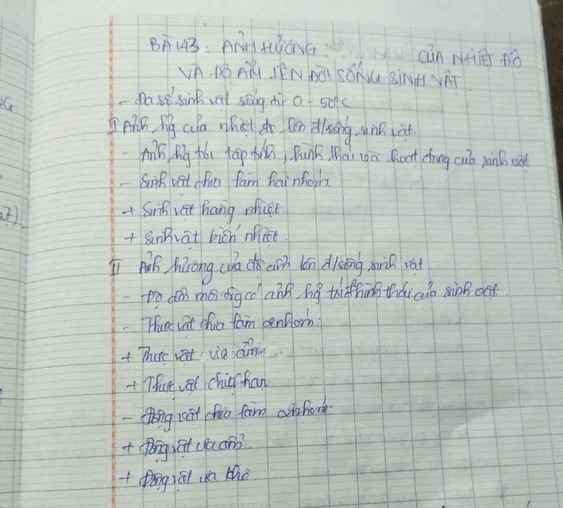 BÀI 43: ẢNH HƯỞNG CỦA NHIỆT ĐỘ
VÀ ĐỘ ẨM LÊN ĐỜI SỐNG SINH VẬT
- Đa số sinh vật sống từ 0 - 50°C
I Ảnh hg của nhiệt độ lên đ/sống sinh vật
- Ảnh hg tới tập tính, hình thái và hoạt động của sinh vật
- Sinh vật chia làm hai nhóm
+ Sinh vật hằng nhiệt
+ Sinh vật biến nhiệt
II Ảnh hưởng của độ ẩm lên đ/sống sinh vật
- Độ ẩm môi trg có ảnh hg tới hình thái của sinh vật
- Thực vật chia làm nhóm:
+ Thực vật ưa ẩm
+ Thực vật chịu hạn
- Động vật chia làm nhóm:
+ Động vật ưa ẩm
+ Động vật ưa khô